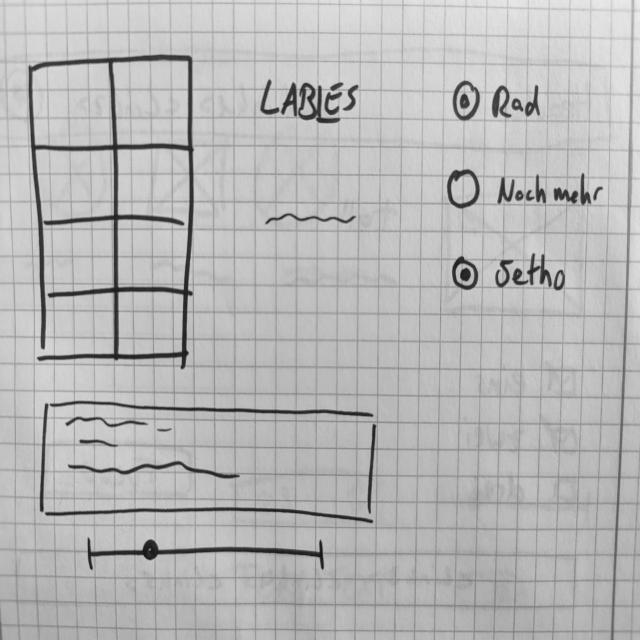 LABLES
Rad
Noch mehr
Jetho